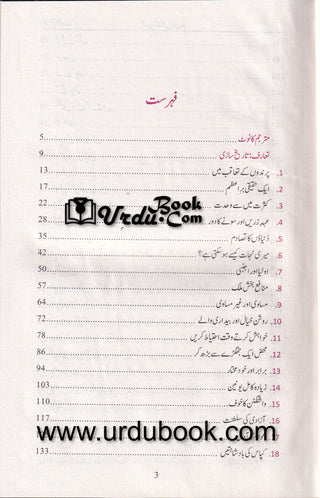 فہرست
مترجم کا نوٹ ........ 5
تعارف: تاریخ سازی ........ 9
1. پرندوں کے تعاقب میں ........ 13
2. ایک حقیقی براعظم ........ 17
3. کثرت میں سے وحدت ........ 22
4. عہد زریں اور سونے کا دور ........ 28
Urdu Book.Com
5. دنیاؤں کا تصادم ........
6. میری نجات کیسے ہو سکتی ہے؟ ........ 42
7. اولیا اور اجنبی ........ 50
8. منافع بخش ملک ........ 57
9. مساوی اور غیر مساوی ........ 64
10. روشن خیال اور بیداری والے ........ 72
11. خواہش کرتے وقت احتیاط کریں ........ 78
12. محض ایک جھگڑے سے بڑھ کر ........ 86
13. برابر اور خود مختار ........ 94
14. زیادہ کامل یونین ........ 103
15. واشنگٹن کا خوف ........ 110
16. آزادی کی سلطنت ........ 117
www.urdubook.com
18. کپاس کی بادشاہتیں ........ 133
3